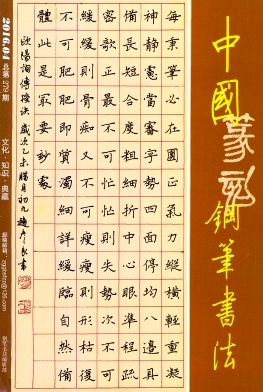 中國篆刻
鋼筆書法
每秉筆必在圓正氣力縱橫輕重凝
神靜慮當審字勢四面停均八邊具
備長短合度粗細折中心眼準程疏
密欹正最不可忙忙則失勢次不可
緩緩則骨痴又不可瘦瘦則形枯復
不可肥肥即質濁細詳緩臨自然備
體此是最要妙處
歐陽詢傳授訣 歲次乙未腊月初九
2016.04 总第279期
文化·知识·典藏